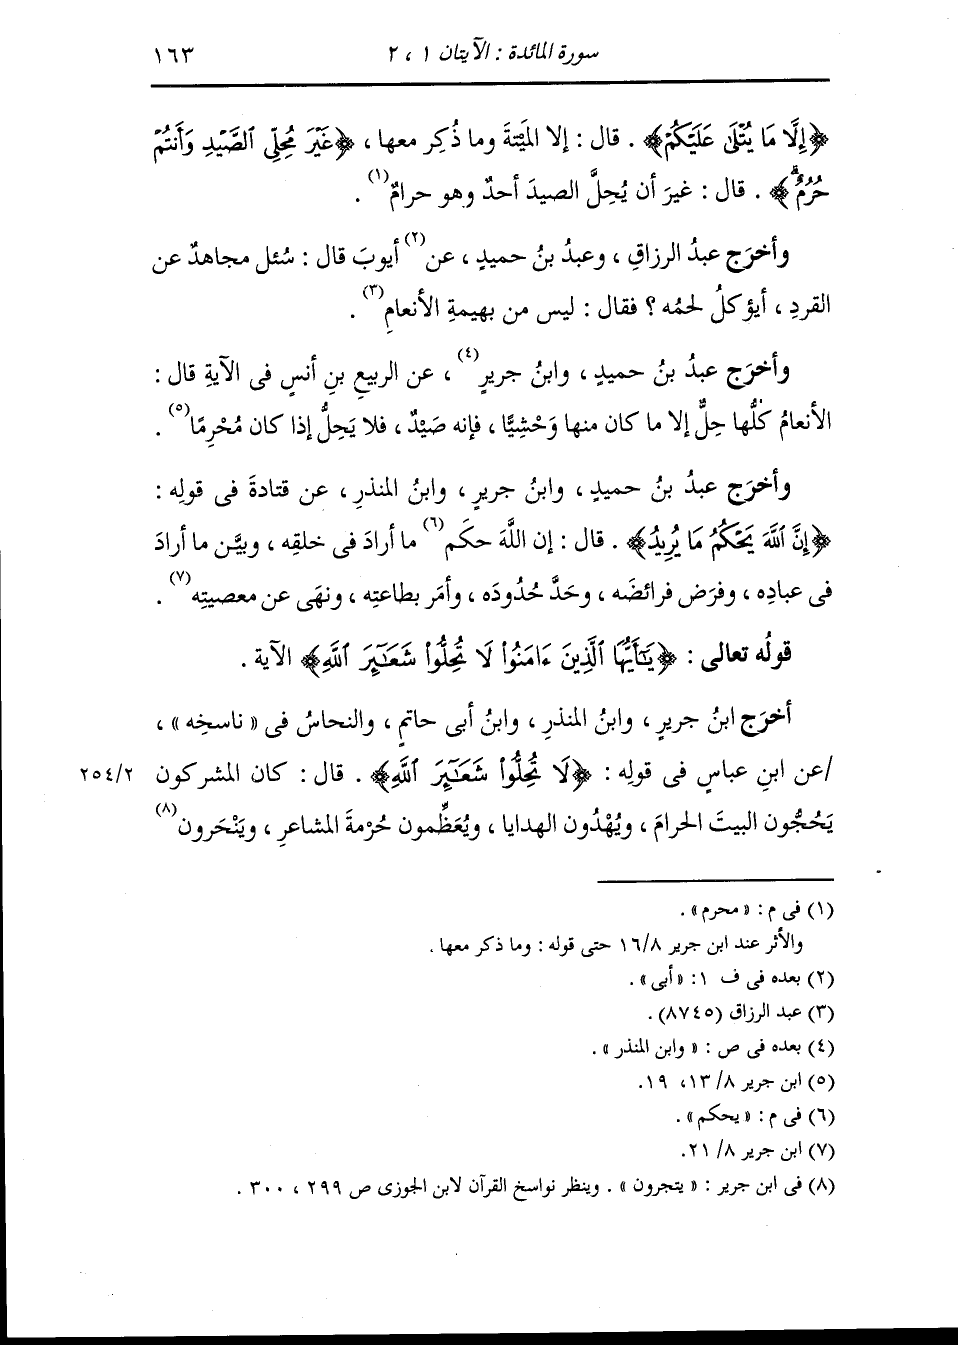 سورة المائدة : الآيتان ١ ، ٢ ١٦٣
﴿إِلَّا مَا يُتْلَىٰ عَلَيْكُمْ﴾ . قال : إلا المَيْتةَ وما ذُكِر معها ، ﴿غَيْرَ مُحِلِّي ٱلصَّيْدِ وَأَنتُمْ
حُرُمٌۗ﴾ . قال : غيرَ أن يُحِلَّ الصيدَ أحدٌ وهو حرامٌ(١) .
وأخرَج عبدُ الرزاقِ ، وعبدُ بنُ حميدٍ ، عن(٢) أيوبَ قال : سُئل مجاهدٌ عن
القردِ ، أيؤكلُ لحمُه ؟ فقال : ليس من بهيمةِ الأنعامِ(٣) .
وأخرَج عبدُ بنُ حميدٍ ، وابنُ جريرٍ(٤) ، عن الربيعِ بنِ أنسٍ فى الآيةِ قال :
الأنعامُ كلُّها حِلٌّ إلا ما كان منها وَحْشِيًّا ، فإنه صَيْدٌ ، فلا يَحِلُّ إذا كان مُحْرِمًا(٥) .
وأخرَج عبدُ بنُ حميدٍ ، وابنُ جريرٍ ، وابنُ المنذرِ ، عن قتادةَ فى قولِه :
﴿إِنَّ ٱللَّهَ يَحْكُمُ مَا يُرِيدُ﴾ . قال : إن اللَّهَ حكَم(٦) ما أرادَ فى خلقِه ، وبيَّن ما أرادَ
فى عبادِه ، وفرَض فرائضَه ، وحَدَّ حُدُودَه ، وأمَر بطاعتِه ، ونهَى عن معصيتِه(٧) .
قولُه تعالى : ﴿يَـٰٓأَيُّهَا ٱلَّذِينَ ءَامَنُوا۟ لَا تُحِلُّوا۟ شَعَـٰٓئِرَ ٱللَّهِ﴾ الآية .
أخرَج ابنُ جريرٍ ، وابنُ المنذرِ ، وابنُ أبى حاتمٍ ، والنحاسُ فى « ناسخِه » ،
/عن ابنِ عباسٍ فى قولِه : ﴿لَا تُحِلُّوا۟ شَعَـٰٓئِرَ ٱللَّهِ﴾ . قال : كان المشركون ٢٥٤/٢
يَحُجُّون البيتَ الحرامَ ، ويُهْدُون الهدايا ، ويُعَظِّمون حُرْمةَ المشاعرِ ، ويَنْحَرون(٨)
(١) فى م : « محرم » .
والأثر عند ابن جرير ١٦/٨ حتى قوله : وما ذكر معها .
(٢) بعده فى ف ١ : « أبى » .
(٣) عبد الرزاق (٨٧٤٥) .
(٤) بعده فى ص : « وابن المنذر » .
(٥) ابن جرير ٨/ ١٣، ١٩.
(٦) فى م : « يحكم » .
(٧) ابن جرير ٨/ ٢١.
(٨) فى ابن جرير : « يتجرون » . وينظر نواسخ القرآن لابن الجوزى ص ٢٩٩ ، ٣٠٠ .